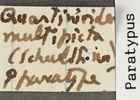 Quartinioides
multipicta
(Schulthess)
♀ paratype
Paratypus